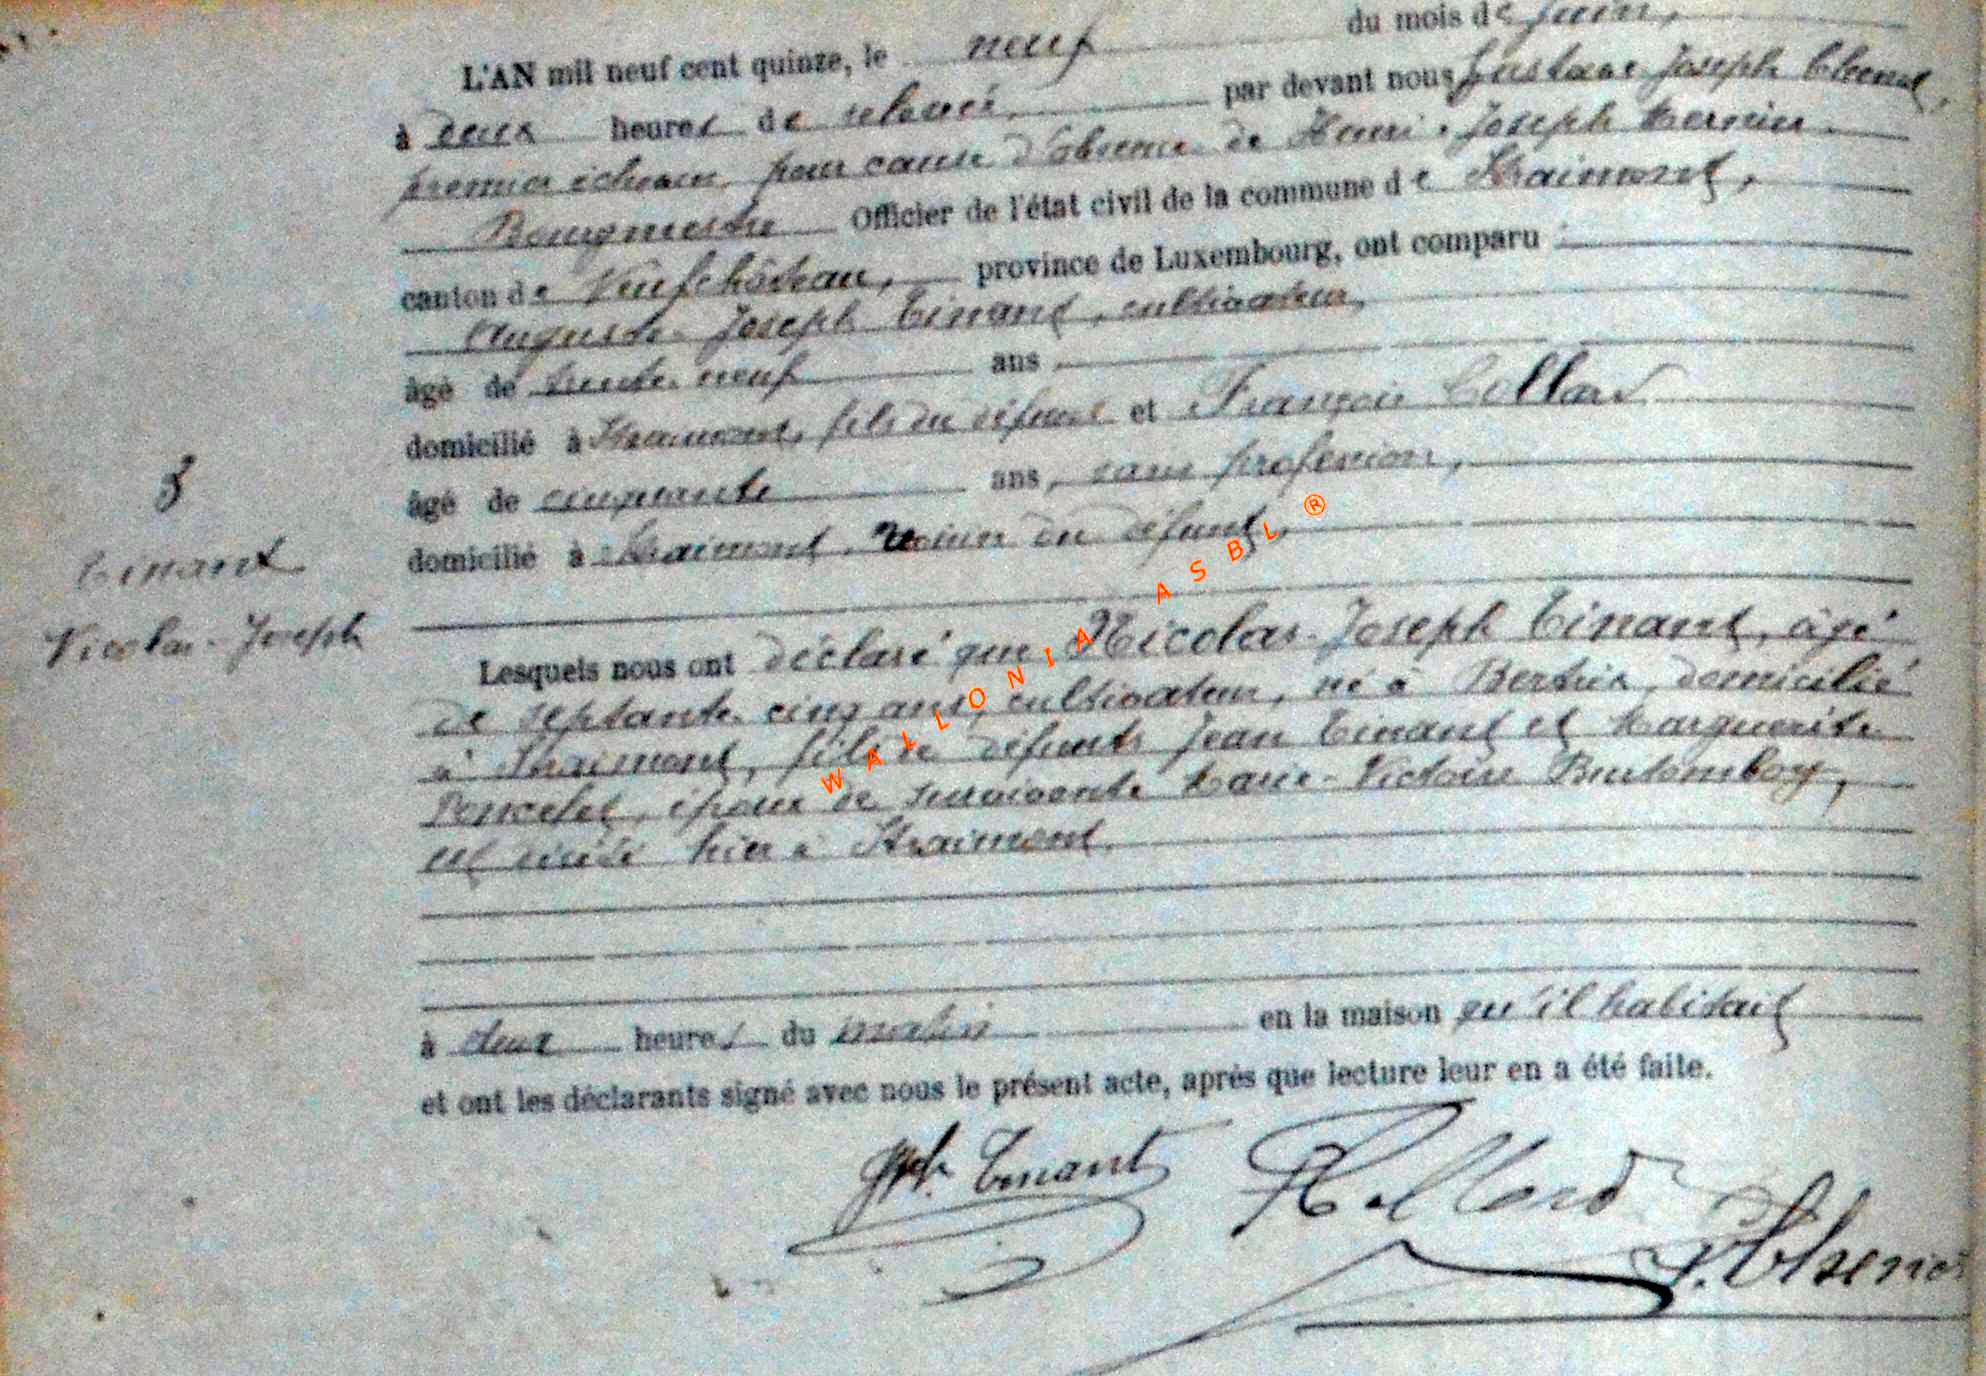 L'AN mil neuf cent quinze, le neuf du mois de juin,
à deux heures de relevé, par devant nous Gustave Joseph Chenot,
premier échevin, pour cause d'absence de Henri-Joseph
Bourgmestre Officier de l'état civil de la commune de Straimont,
canton de Neufchâteau, province de Luxembourg, ont comparu :
Auguste-Joseph Tinant, cultivateur,
âgé de trente-neuf ans
domicilié à Straimont, fils du défunt et François Collard
âgé de cinquante ans, sans profession,
domicilié à Straimont, voisin du défunt,
3
Tinant
Nicolas-Joseph
Lesquels nous ont déclaré que Nicolas-Joseph Tinant, âgé
de septante-cinq ans, cultivateur, né à Bertrix, domicilié
à Straimont, fils de défunts Jean Tinant et Marguerite
Poncelet, époux de survivante Marie-Victoire
est décédé hier à Straimont.
à deux heures du matin en la maison qu'il habitait
et ont les déclarants signé avec nous le présent acte, après que lecture leur en a été faite.
Jph. Tinant Collard
Chenot
WALLONIA ASBL ®